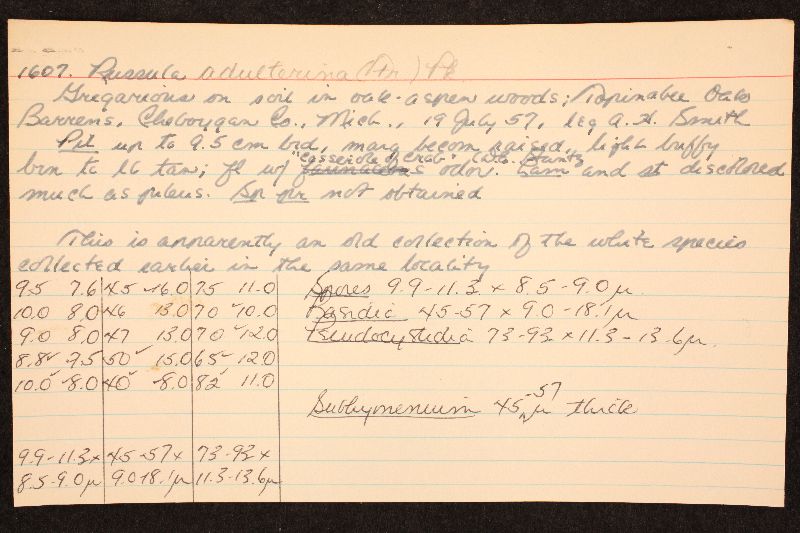 1607. Russula adulterina (Fr.) Pk.
Gregarious on soil in oak-aspen woods; Topinabee Oak
Barrens, Cheboygan Co., Mich., 19 July 57, leg A. H. Smith
Pil up to 9.5 cm brd, marg becom raised, light buffy
brn to lt tan; fl w/ farinaceous "casserole of crab" odor. Lam and st discolored
much as pileus. Sp pr not obtained
This is apparently an old collection of the white species
collected earlier in the same locality
9.5 7.6 45 16.0 75 11.0 Spores 9.9-11.3 x 8.5-9.0 µ
10.0 8.0 46 13.0 70 10.0 Basidia 45-57 x 9.0-18.1 µ
9.0 8.0 47 13.0 70 12.0 Pseudocystidia 73-93 x 11.3-13.6 µ.
8.8 9.5 50 15.0 65 12.0
10.0 8.0 40 8.0 82 11.0
Subhymenium 45-57 µ thick
9.9-11.3 x 45-57 x 73-93 x
8.5-9.0 µ 9.0-18.1 µ 11.3-13.6 µ